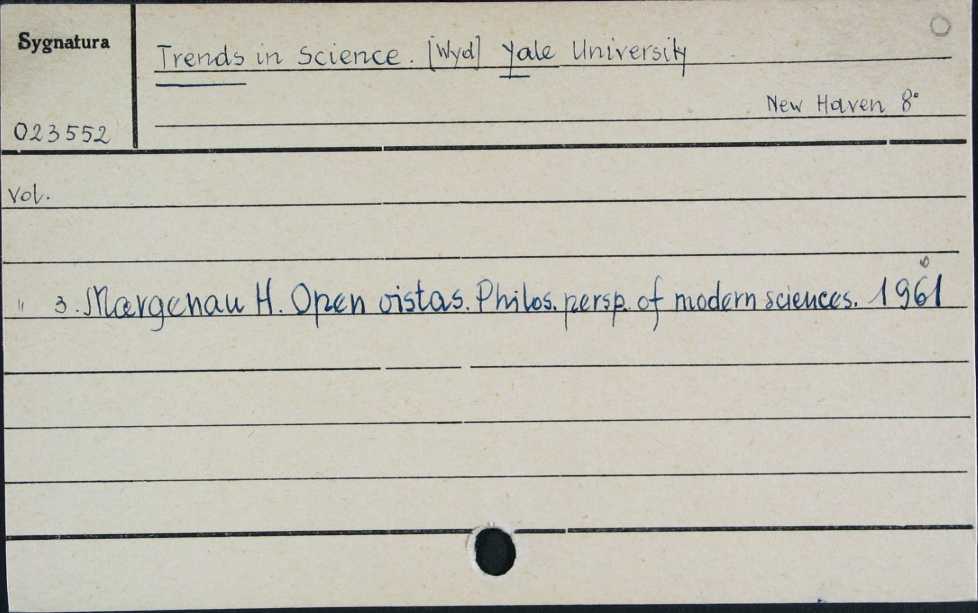 Sygnatura
Trends in Science. [Wyd] Yale University
New Haven 8°
023552
Vol.
" 3. Margenau H. Open vistas. Philos. persp. of modern sciences. 1961